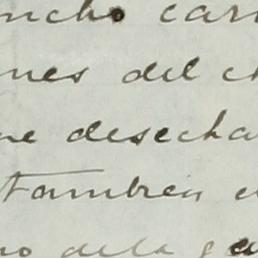 ncho car
nes del c
ue desecha
tambien e
no dela ga